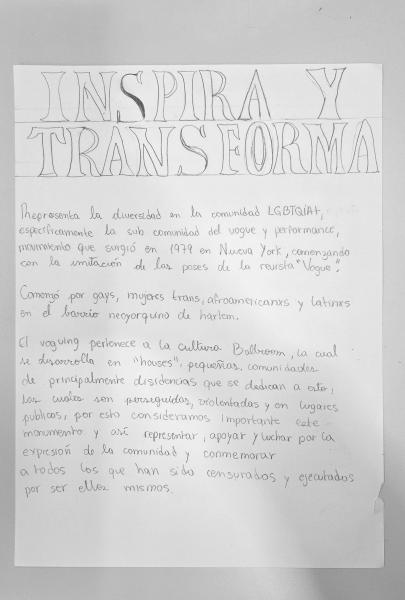 INSPIRA Y
TRANSFORMA
Representa la diversidad en la comunidad LGBTQIA+,
específicamente la sub comunidad del vogue y performance,
movimiento que surgió en 1979 en Nueva York, comenzando
con la imitación de las poses de la revista "Vogue".
Comenzó por gays, mujeres trans, afroamericanxs y latinxs
en el barrio neoyorquino de harlem.
El voguing pertenece a la cultura Ballroom, la cual
se desarrolla en "houses", pequeñas comunidades
de principalmente disidencias que se dedican a esto,
los cuales son perseguidas, violentadas y en lugares
publicos, por esto consideramos importante este
monumento y así representar, apoyar y luchar por la
expresión de la comunidad y conmemorar
a todos los que han sido censurados y ejecutados
por ser elles mismos.